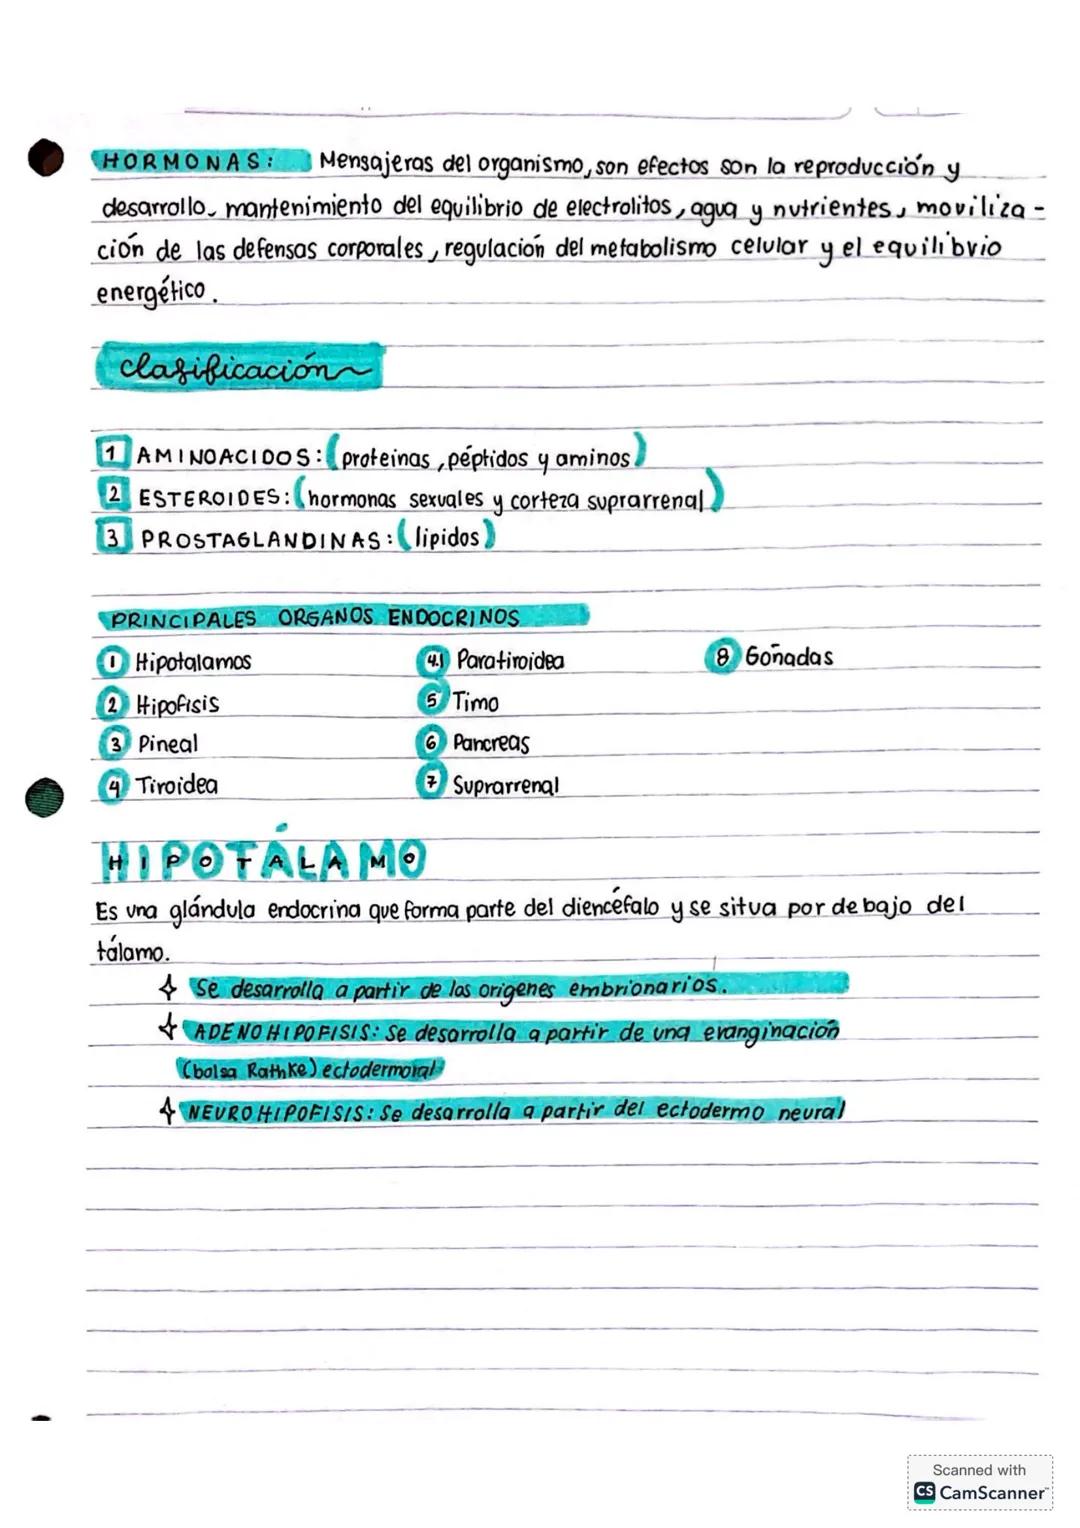 HORMONAS: Mensajeras del organismo, son efectos son la reproducción y
desarrollo, mantenimiento del equilibrio de electrolitos, agua y nutrientes, moviliza-
ción de las defensas corporales, regulación del metabolismo celular y el equilibrio
energético.
clasificación
1 AMINOACIDOS: (proteinas, péptidos y aminos)
2 ESTEROIDES: (hormonas sexuales y corteza suprarrenal)
3 PROSTAGLANDINAS: (lipidos)
PRINCIPALES ORGANOS ENDOCRINOS
1 Hipotalamos
2 Hipofisis
3 Pineal
4 Tiroidea
4.1 Paratiroidea
5 Timo
6 Pancreas
7 Suprarrenal
8 Gonadas
HIPOTÁLAMO
Es una glándula endocrina que forma parte del diencéfalo y se situa por debajo del
tálamo.
Se desarrolla a partir de los origenes embrionarios.
ADENOHIPOFISIS: Se desarrolla a partir de una evanginación
(bolsa Rathke) ectodermoral
NEUROHIPOFISIS: Se desarrolla a partir del ectodermo neural
Scanned with
CS CamScanner